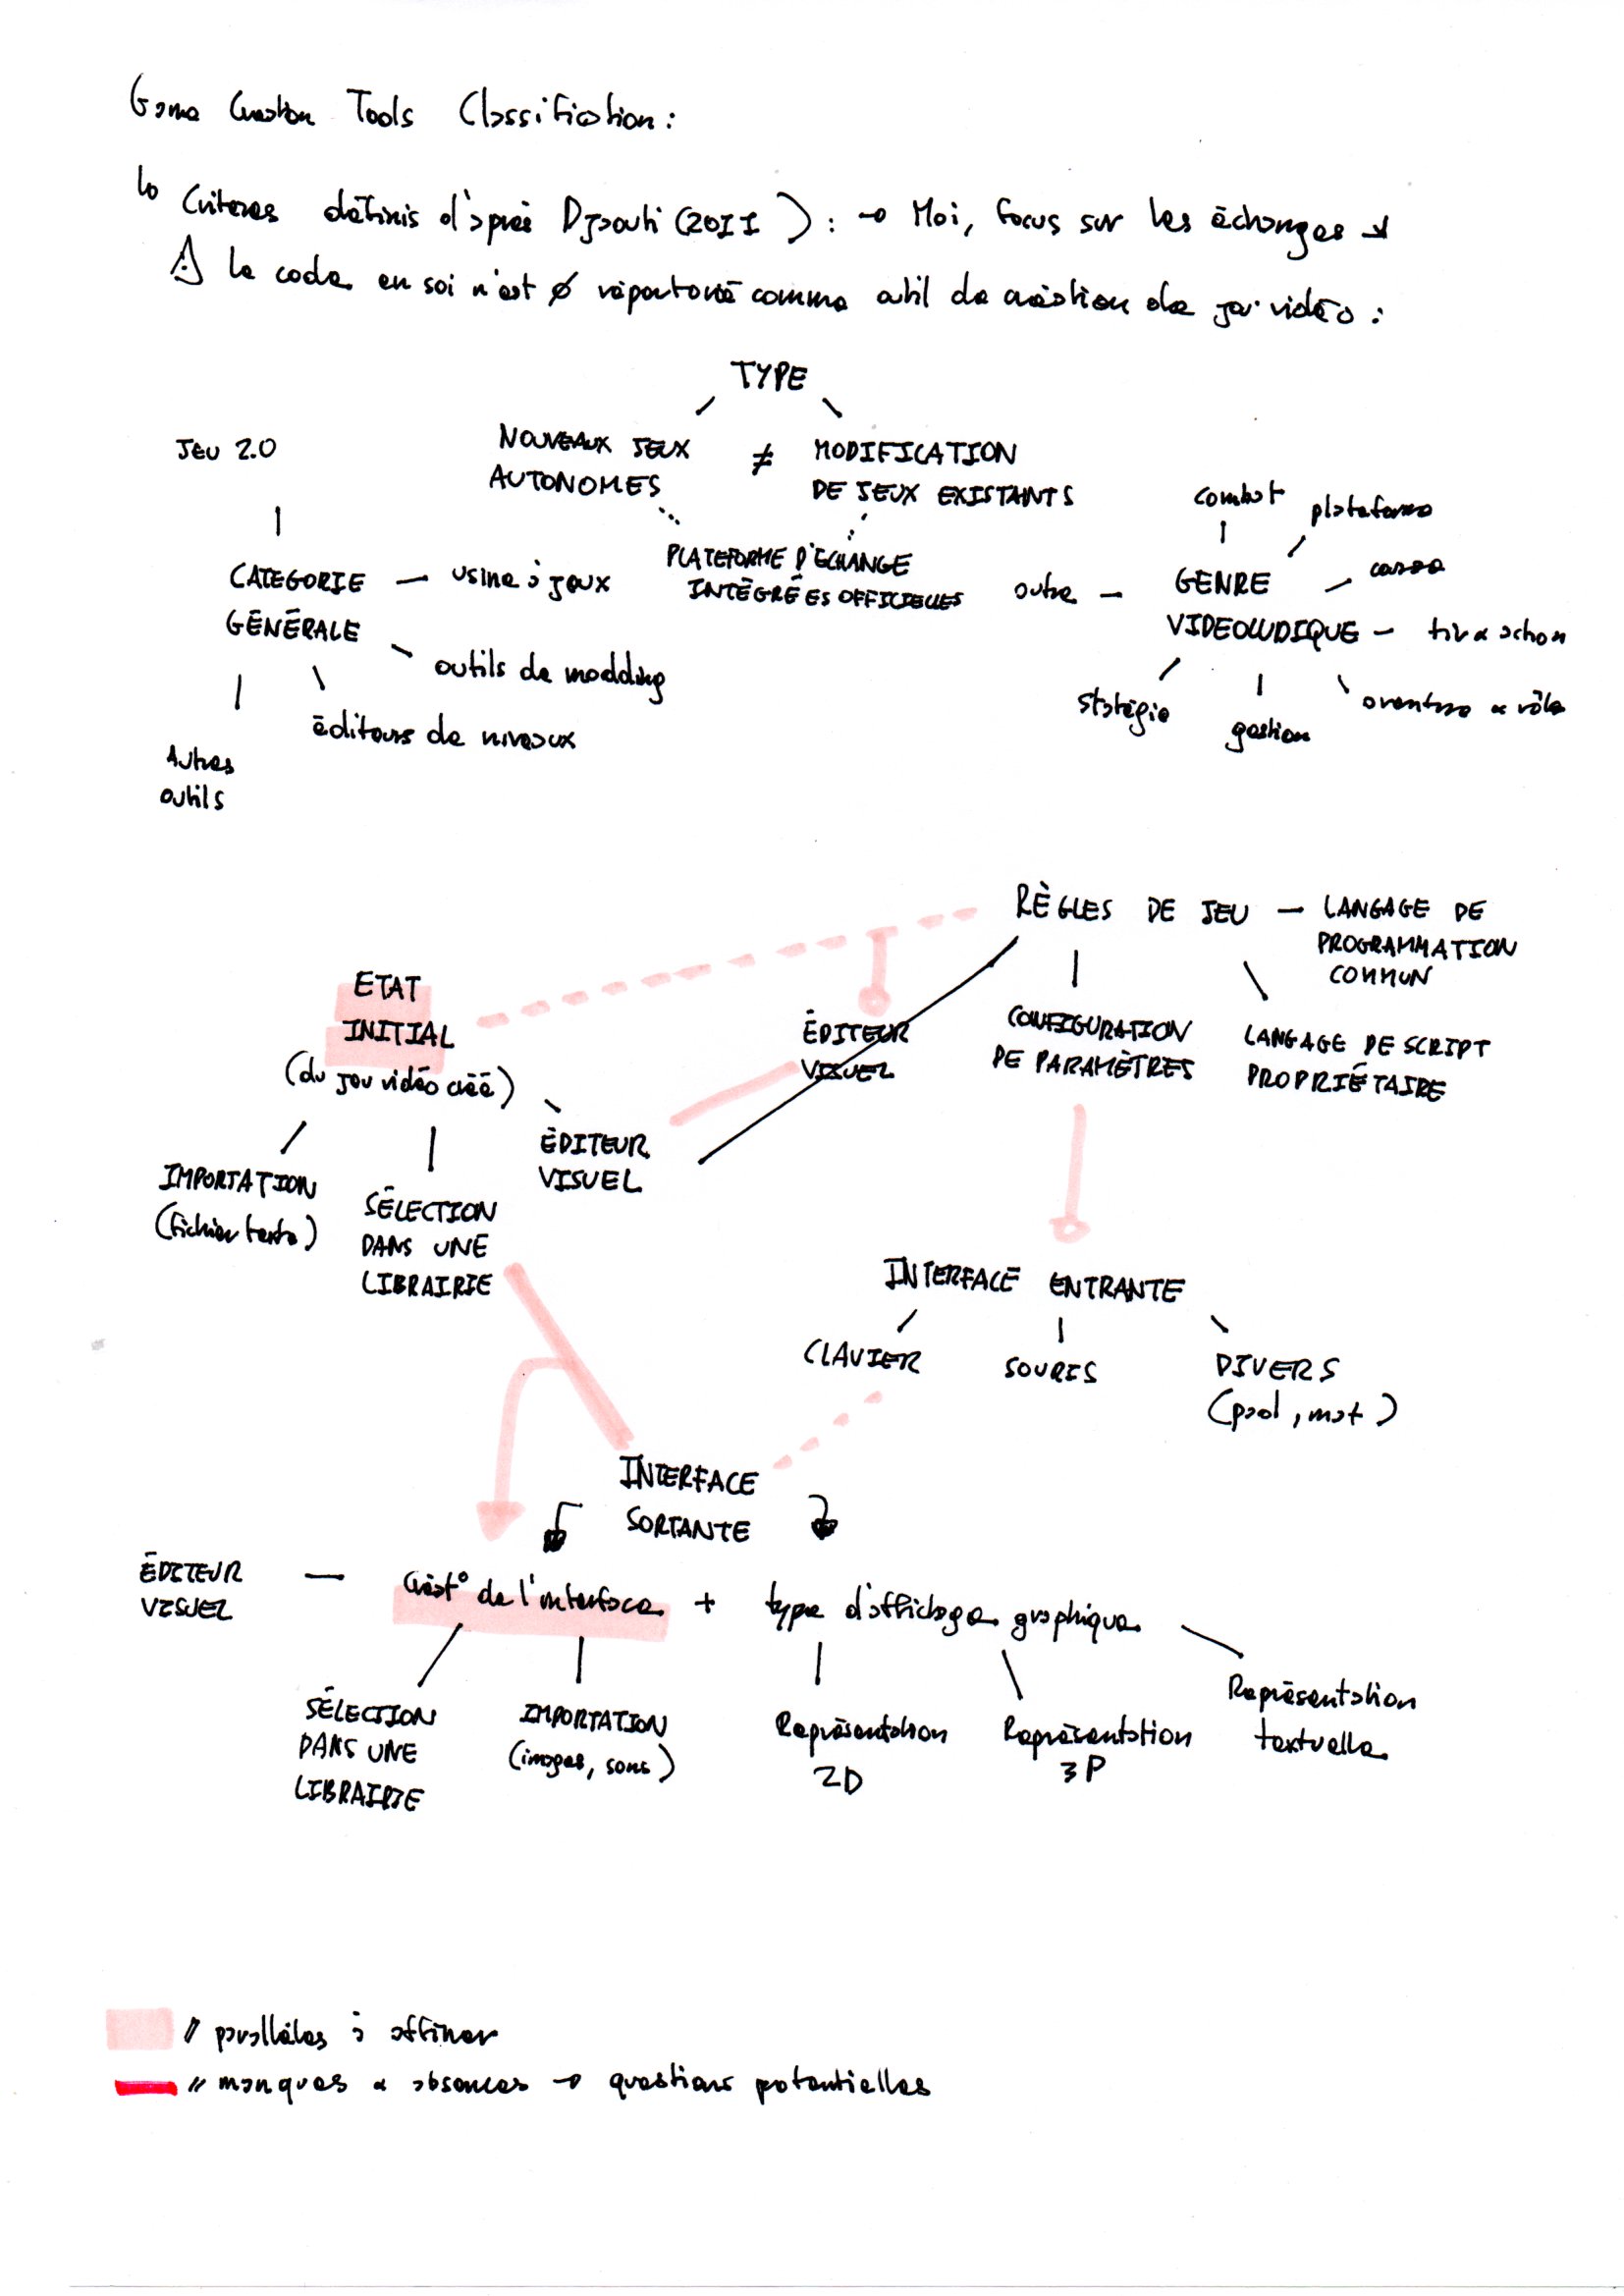 Game Creation Tools Classification :
↳ Critères définis d'après Djaouti (2011) : → Moi, focus sur les échanges ↓
⚠ le code en soi n'est ∅ répertorié comme outil de création de jeu vidéo :
TYPE
JEU 2.0
NOUVEAUX JEUX
AUTONOMES
≠
MODIFICATION
DE JEUX EXISTANTS
PLATEFORME D'ÉCHANGE
INTÉGRÉES OFFICIELLES
CATEGORIE
GÉNÉRALE
usine à jeux
outils de modding
éditeurs de niveaux
Autres
outils
combat
plateforme
course
autre
GENRE
VIDEOLUDIQUE
tir & action
aventure & rôle
gestion
statégie
RÈGLES DE JEU
LANGAGE DE
PROGRAMMATION
COMMUN
ETAT
INITIAL
(du jeu vidéo créé)
ÉDITEUR
VISUEL
CONFIGURATION
DE PARAMÈTRES
LANGAGE DE SCRIPT
PROPRIÉTAIRE
IMPORTATION
(fichier texte)
SÉLECTION
DANS UNE
LIBRAIRIE
ÉDITEUR
VISUEL
INTERFACE ENTRANTE
CLAVIER
SOURIS
DIVERS
(pad, mat)
INTERFACE
SORTANTE
ÉDITEUR
VISUEL
Créat° de l'interface + type d'affichage graphique
SÉLECTION
DANS UNE
LIBRAIRIE
IMPORTATION
(images, sons)
Représentation
2D
Représentation
3D
Représentation
textuelle
// parallèles à affiner
// manques & absences → questions potentielles